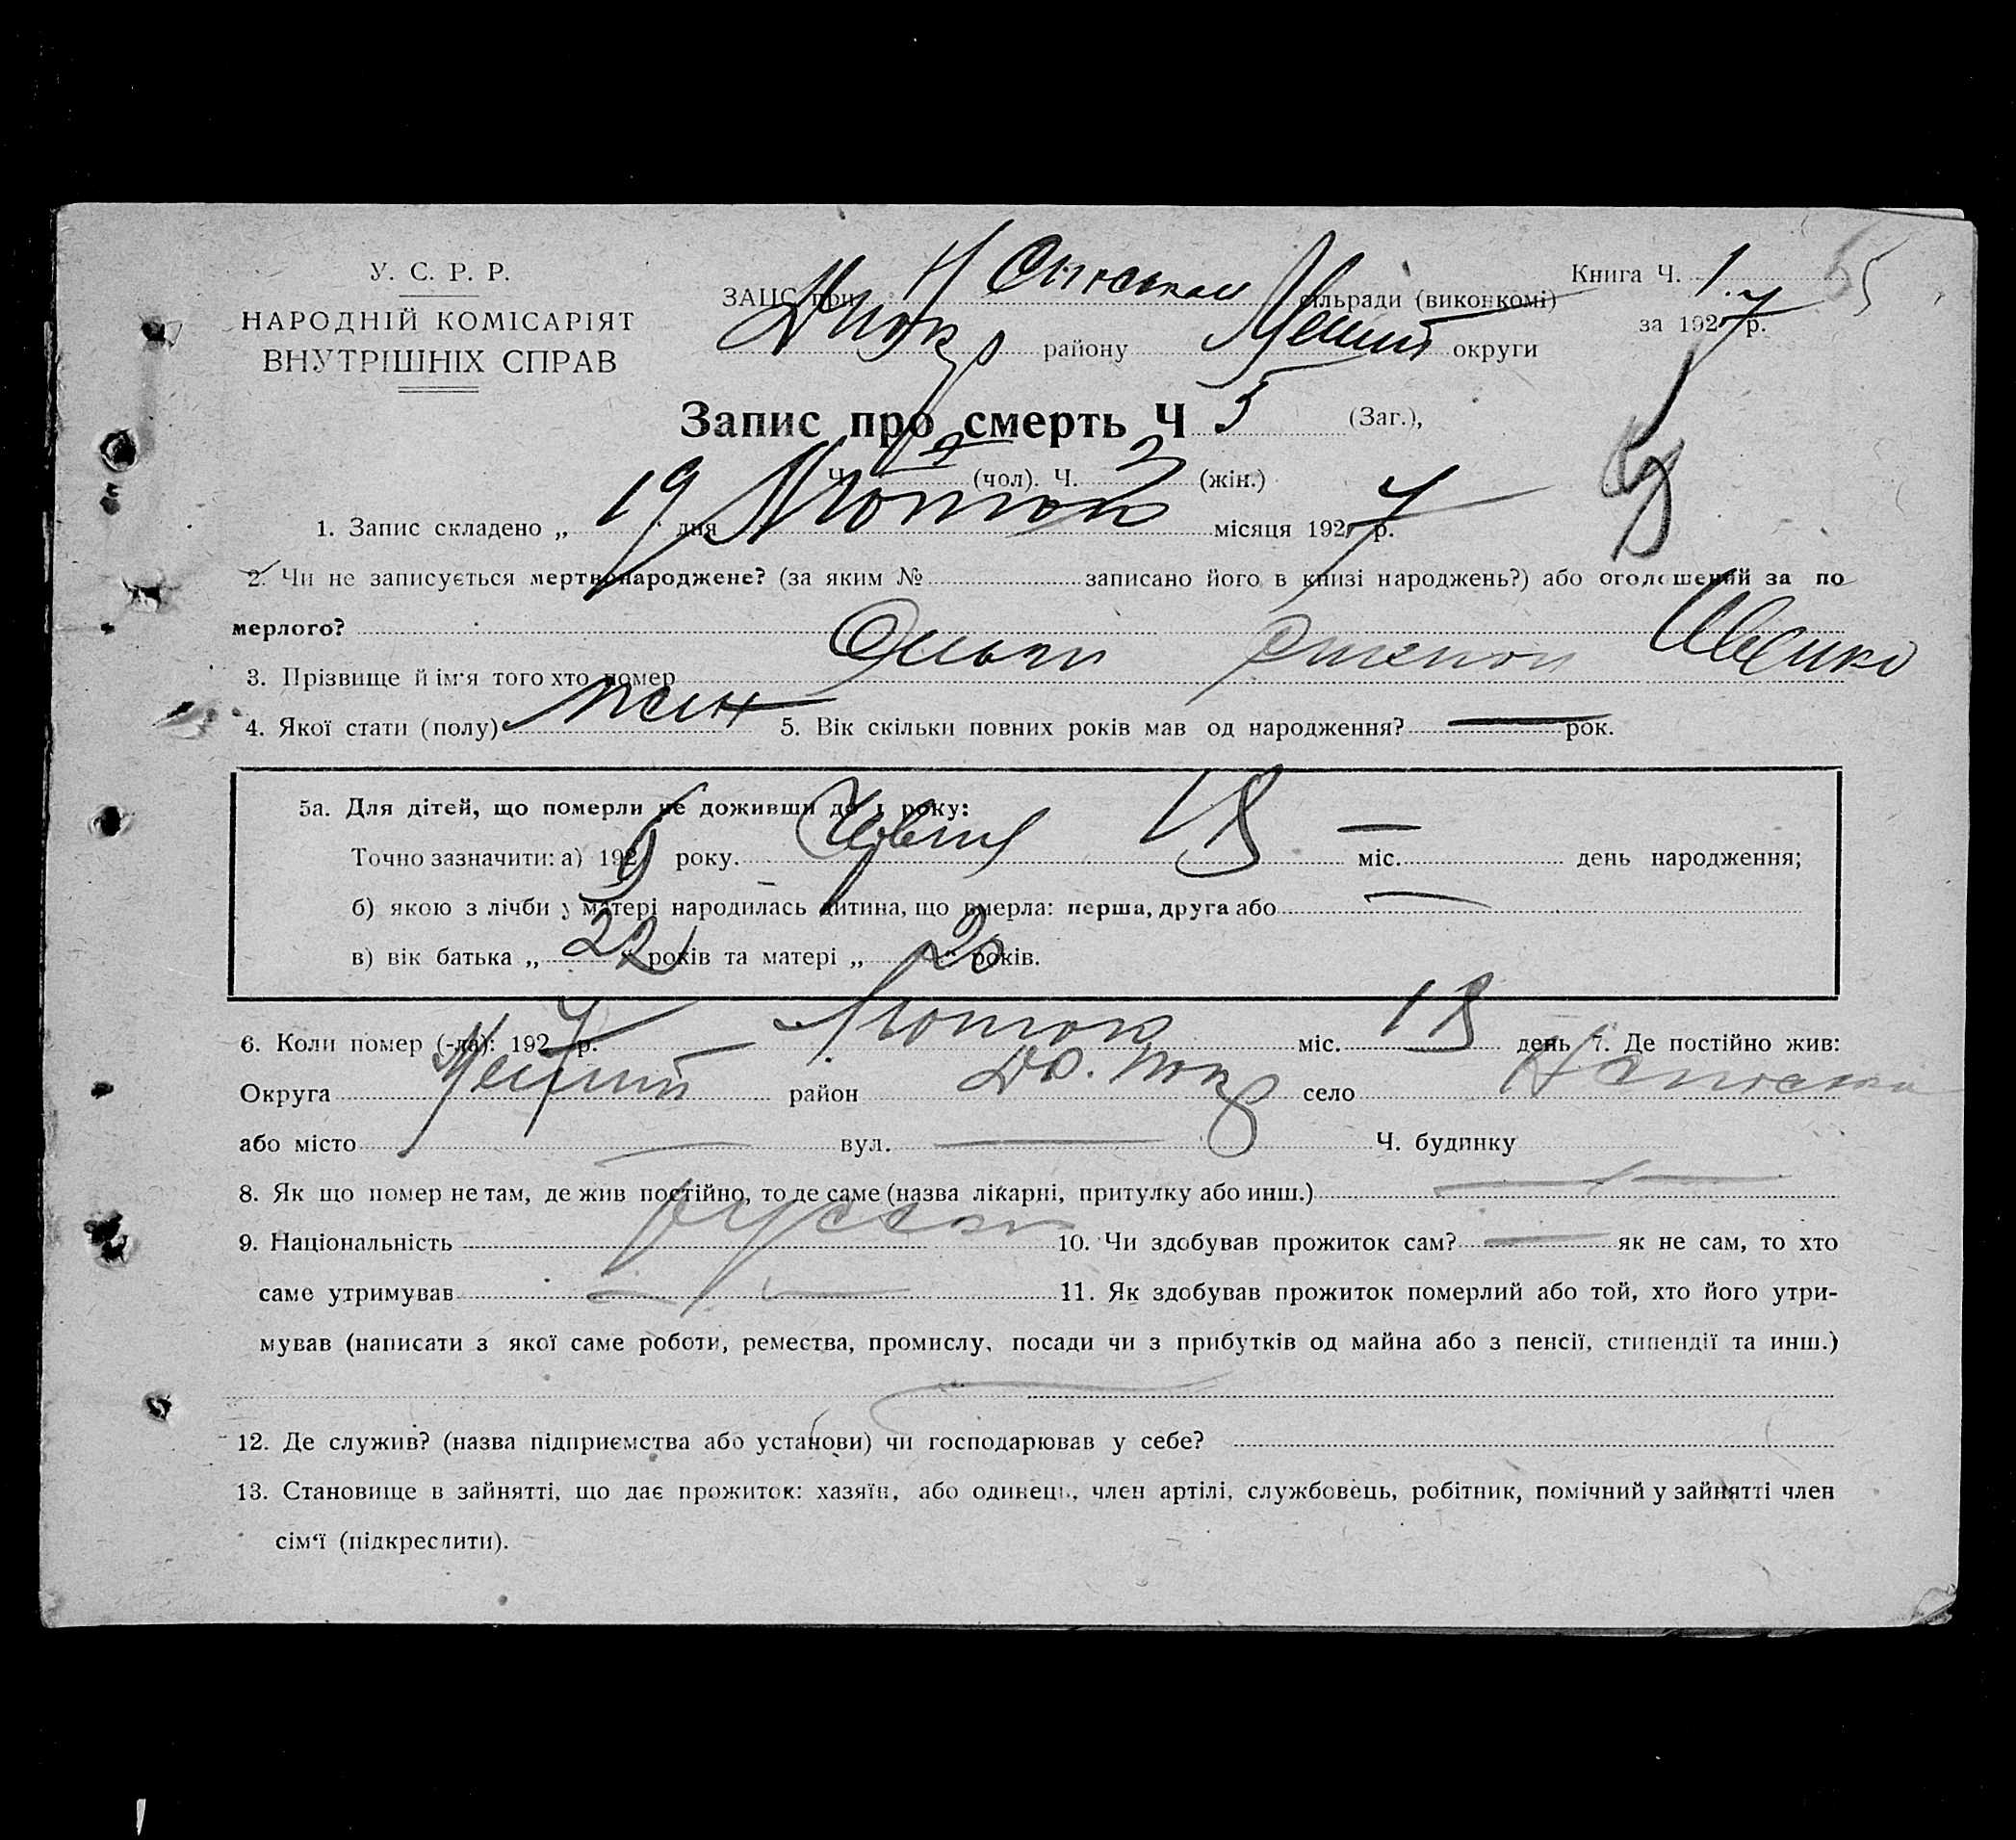 У. С. Р. Р.
НАРОДНІЙ КОМІСАРІЯТ
ВНУТРІШНІХ СПРАВ
ЗАЦС при сільради (виконкомі)
району округи
Книга Ч. 1.
за 1927 р.
Запис про смерть Ч 5 (Заг.),
Ч. (чол). Ч. 3 (жін.)
1. Запис складено „ 19 " дня Лютого місяця 1927 р.
2. Чи не записується мертвонароджене? (за яким № записано його в книзі народжень?) або оголошений за по
мерлого?
3. Прізвище й ім'я того хто помер
4. Якої стати (полу) жін 5. Вік скільки повних років мав од народження? — рок.
5а. Для дітей, що померли не доживши до 1 року:
Точно зазначити: а) 1926 року. 18 — міс. день народження;
б) якою з лічби у матері народилась дитина, що вмерла: перша, друга або —
в) вік батька „ 22 " років та матері „ 20 " років.
6. Коли помер (-ла): 1927 р. Лютого міс. 18 день 7. Де постійно жив:
Округа район село
або місто — вул. — Ч. будинку
8. Як що помер не там, де жив постійно, то де саме (назва лікарні, притулку або инш.) —
9. Національність 10. Чи здобував прожиток сам? — як не сам, то хто
саме утримував — 11. Як здобував прожиток померлий або той, хто його утри-
мував (написати з якої саме роботи, ремества, промислу, посади чи з прибутків од майна або з пенсії, стипендії та инш.)
12. Де служив? (назва підприємства або установи) чи господарював у себе?
13. Становище в зайнятті, що дає прожиток: хазяїн, або одинець, член артілі, службовець, робітник, помічний у зайнятті член
сім'ї (підкреслити).